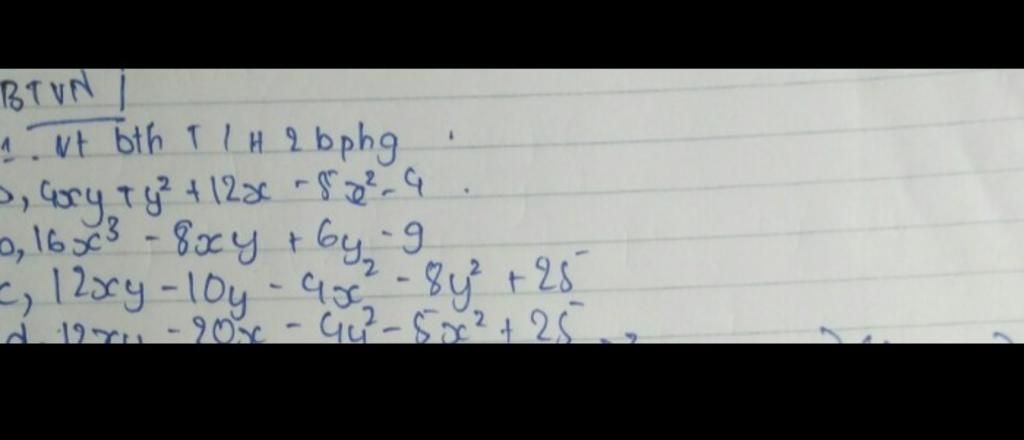 BTVN
1. Vt bth T / H 2 bphg
4xy + y² + 12x - 5x² - 9
16x³ - 8xy + 6y - 9
c, 12xy - 10y - 4x² - 8y² + 25
d, 12xy - 20x - 4y² - 5x² + 25